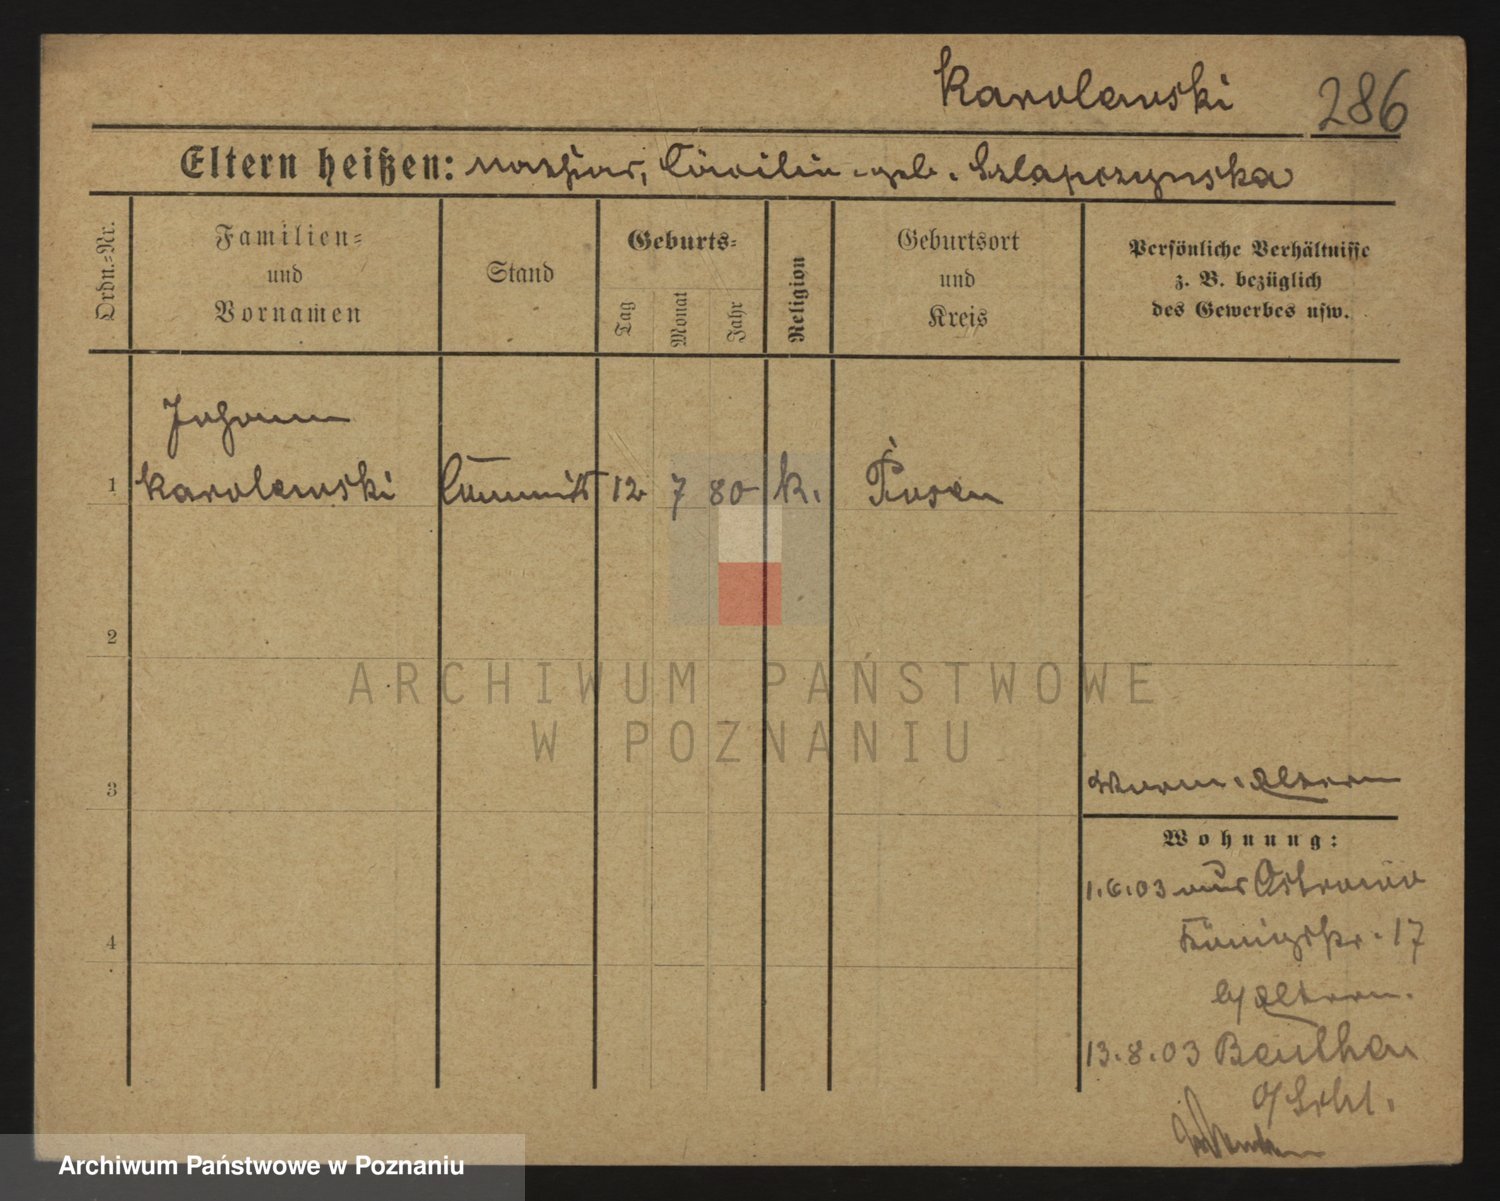 Karolewski 286
Eltern heißen: Cäcilie geb. Szlapczynska
Ordn.-Nr.
Familien-
und
Vornamen
Stand
Geburts-
Tag
Monat
Jahr
Religion
Geburtsort
und
Kreis
Persönliche Verhältnisse
z. B. bezüglich
des Gewerbes usw.
Johann
1 Karolewski Commis 12 7 80 k. Posen
2
3
4
Eltern
Wohnung:
1.6.03 aus Ostrowo
Königstr. 17
b/ Eltern.
13.8.03 Beuthen
o/Schl.
ARCHIWUM PAŃSTWOWE
W POZNANIU
Archiwum Państwowe w Poznaniu